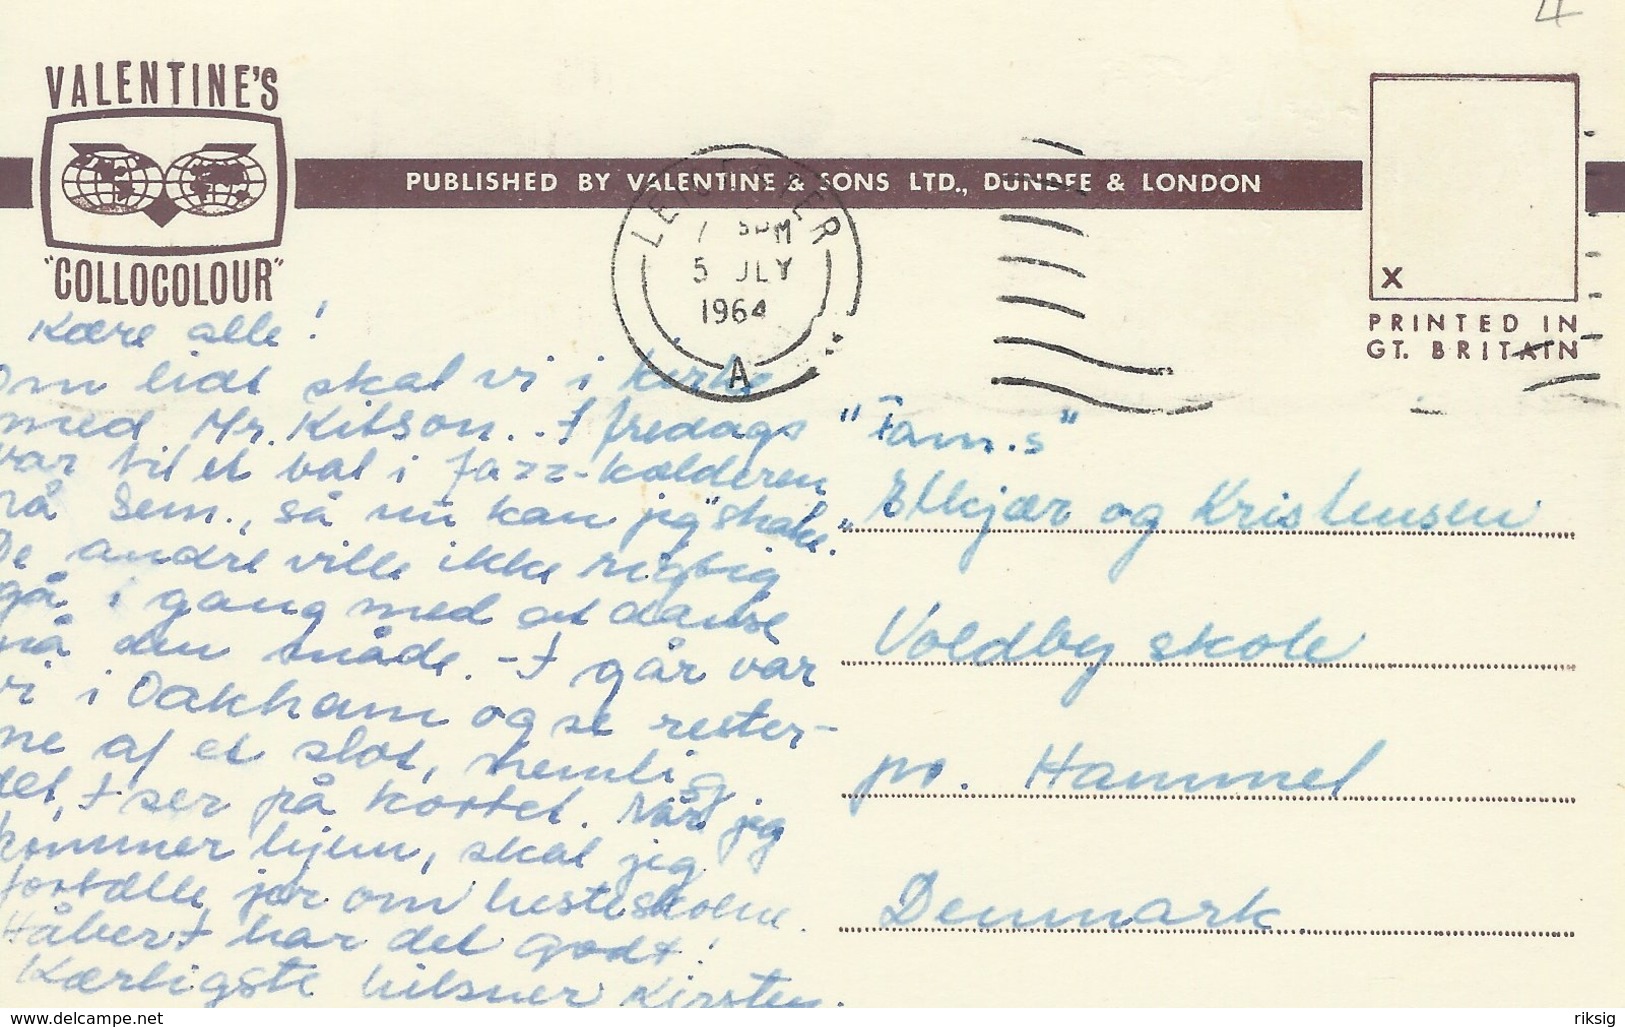 4
VALENTINE'S
"COLLOCOLOUR"
PUBLISHED BY VALENTINE & SONS LTD., DUNDEE & LONDON
LEICESTER
7 PM
5 JLY
1964
A
X
PRINTED IN
GT. BRITAIN
Kære alle!
Om lidt skal vi i kirke
med Mr. Kitson. - I fredags
var til et bal i Jazz-kælderen
på Sem., så nu kan jeg "shake".
De andre ville ikke rigtig
gå i gang med at danse
på den måde. - I går var
vi i Oakham og se rester-
ne af et slot, nemlig
det, I ser på kortet. Når jeg
kommer hjem, skal jeg
fortælle jer om hesteskoene.
Håber I har det godt!
Kærligste hilsner Kirsten.
"Fam.s"
Elkjær og Kristensen
Voldby skole
pr. Hammel
Denmark
www.delcampe.net
riksig